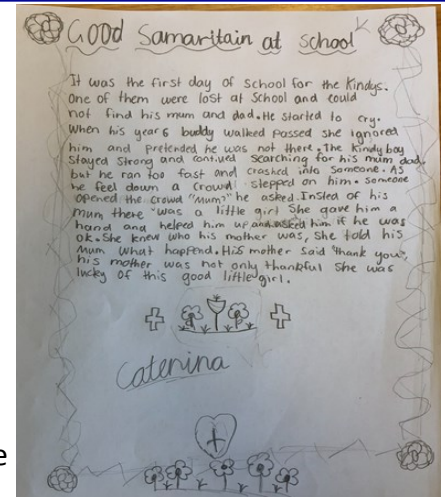 Good Samaritain at school
It was the first day of school for the Kindys.
One of them were lost at School and could
not find his mum and dad. He started to cry.
When his year 6 buddy walked passed she ignored
him and pretended he was not there. The Kindy boy
Stayed Strong and contiued searching for his mum dad
but he ran too fast and crashed into someone. As
he feel down a crowd stepped on him. someone
opened the crowd "Mum?" he asked. Insted of his
mum there was a little girl She gave him a
hand and helped him up and asked him if he was
ok. She knew who his mother was, She told his
Mum what happend. His mother said "thank you",
his mother was not only thankful she was
lucky of this good little girl.
Caterina
e